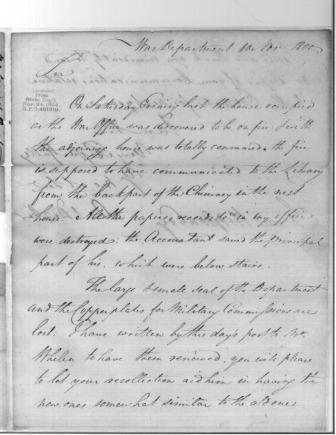 War Department 10 Nov 1800
Sir
On Saturday Evening last the house occupied
as the War Office was discovered to be on fire &
the adjoining house was totally consumed. the fire
is supposed to have communicated to the Library
from the back part of the Chimney in the next
house. All the papers, records &c in my office
were destroyed: the Accountant saved the principal
part of his, which were below stairs.
The large & small seal of the Department
and the Copperplates for Military Commissions are
lost. I have written by this day's post to Mr.
Whelen to have them renewed, you will please
to let your recollection aid him in having the
new ones somewhat similar to the old ones